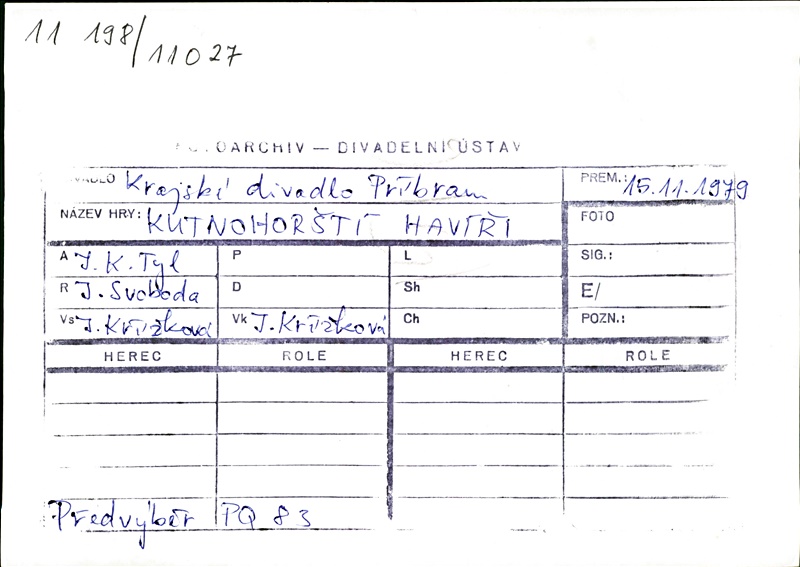 11 198/11027
FOTOARCHIV — DIVADELNÍ ÚSTAV
DIVADLO Krajské divadlo Příbram PREM.: 15.11.1979
NÁZEV HRY: KUTNOHORŠTÍ HAVÍŘI FOTO
A J. K. Tyl P L SIG.:
R J. Svoboda D Sh E/
Vs J. Křížková Vk J. Křížková Ch POZN.:
HEREC ROLE HEREC ROLE
Předvýběr PQ 83